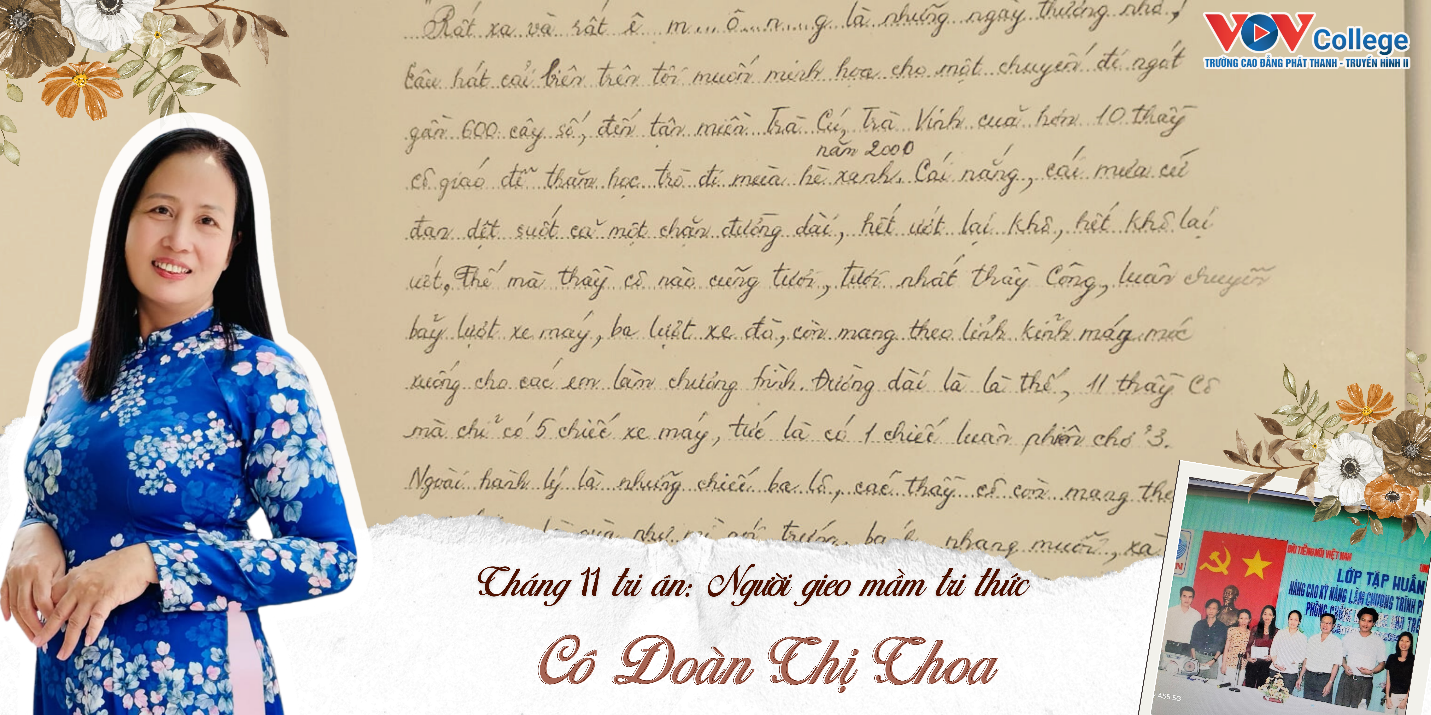 "Rất xa và rất ê m...ô...n...g là những ngày thương nhớ,"
câu hát cải biên trên tôi muốn minh họa cho một chuyến đi ngót
gần 600 cây số, đến tận miền Trà Cú, Trà Vinh của hơn 10 thầy
năm 2000
cô giáo để thăm học trò đi mùa hè xanh. Cái nắng, cái mưa cứ
đan dệt suốt cả một chặn đường dài, hết ướt lại khô, hết khô lại
ướt. Thế mà thầy cô nào cũng tươi, tươi nhất thầy Công, luân chuyển
bảy lượt xe máy, ba lượt xe đò, còn mang theo linh kiện máy móc
xuống cho các em làm chương trình. Đường dài là là thế, 11 thầy cô
mà chỉ có 5 chiếc xe máy, tức là có 1 chiếc luân phiên chở 3.
Ngoài hành lý là những chiếc ba lô, các thầy cô còn mang the
quà như mì gói trứng, nhang muỗi, xà
VOV College
TRƯỜNG CAO ĐẲNG PHÁT THANH - TRUYỀN HÌNH II
Tháng 11 tri ân: Người gieo mầm tri thức
Cô Đoàn Thị Thoa
ĐÀI TIẾNG NÓI VIỆT NAM
LỚP TẬP HUẤN
NÂNG CAO KỸ NĂNG LÀM CHƯƠNG TRÌNH P
PHÒNG CHỐNG